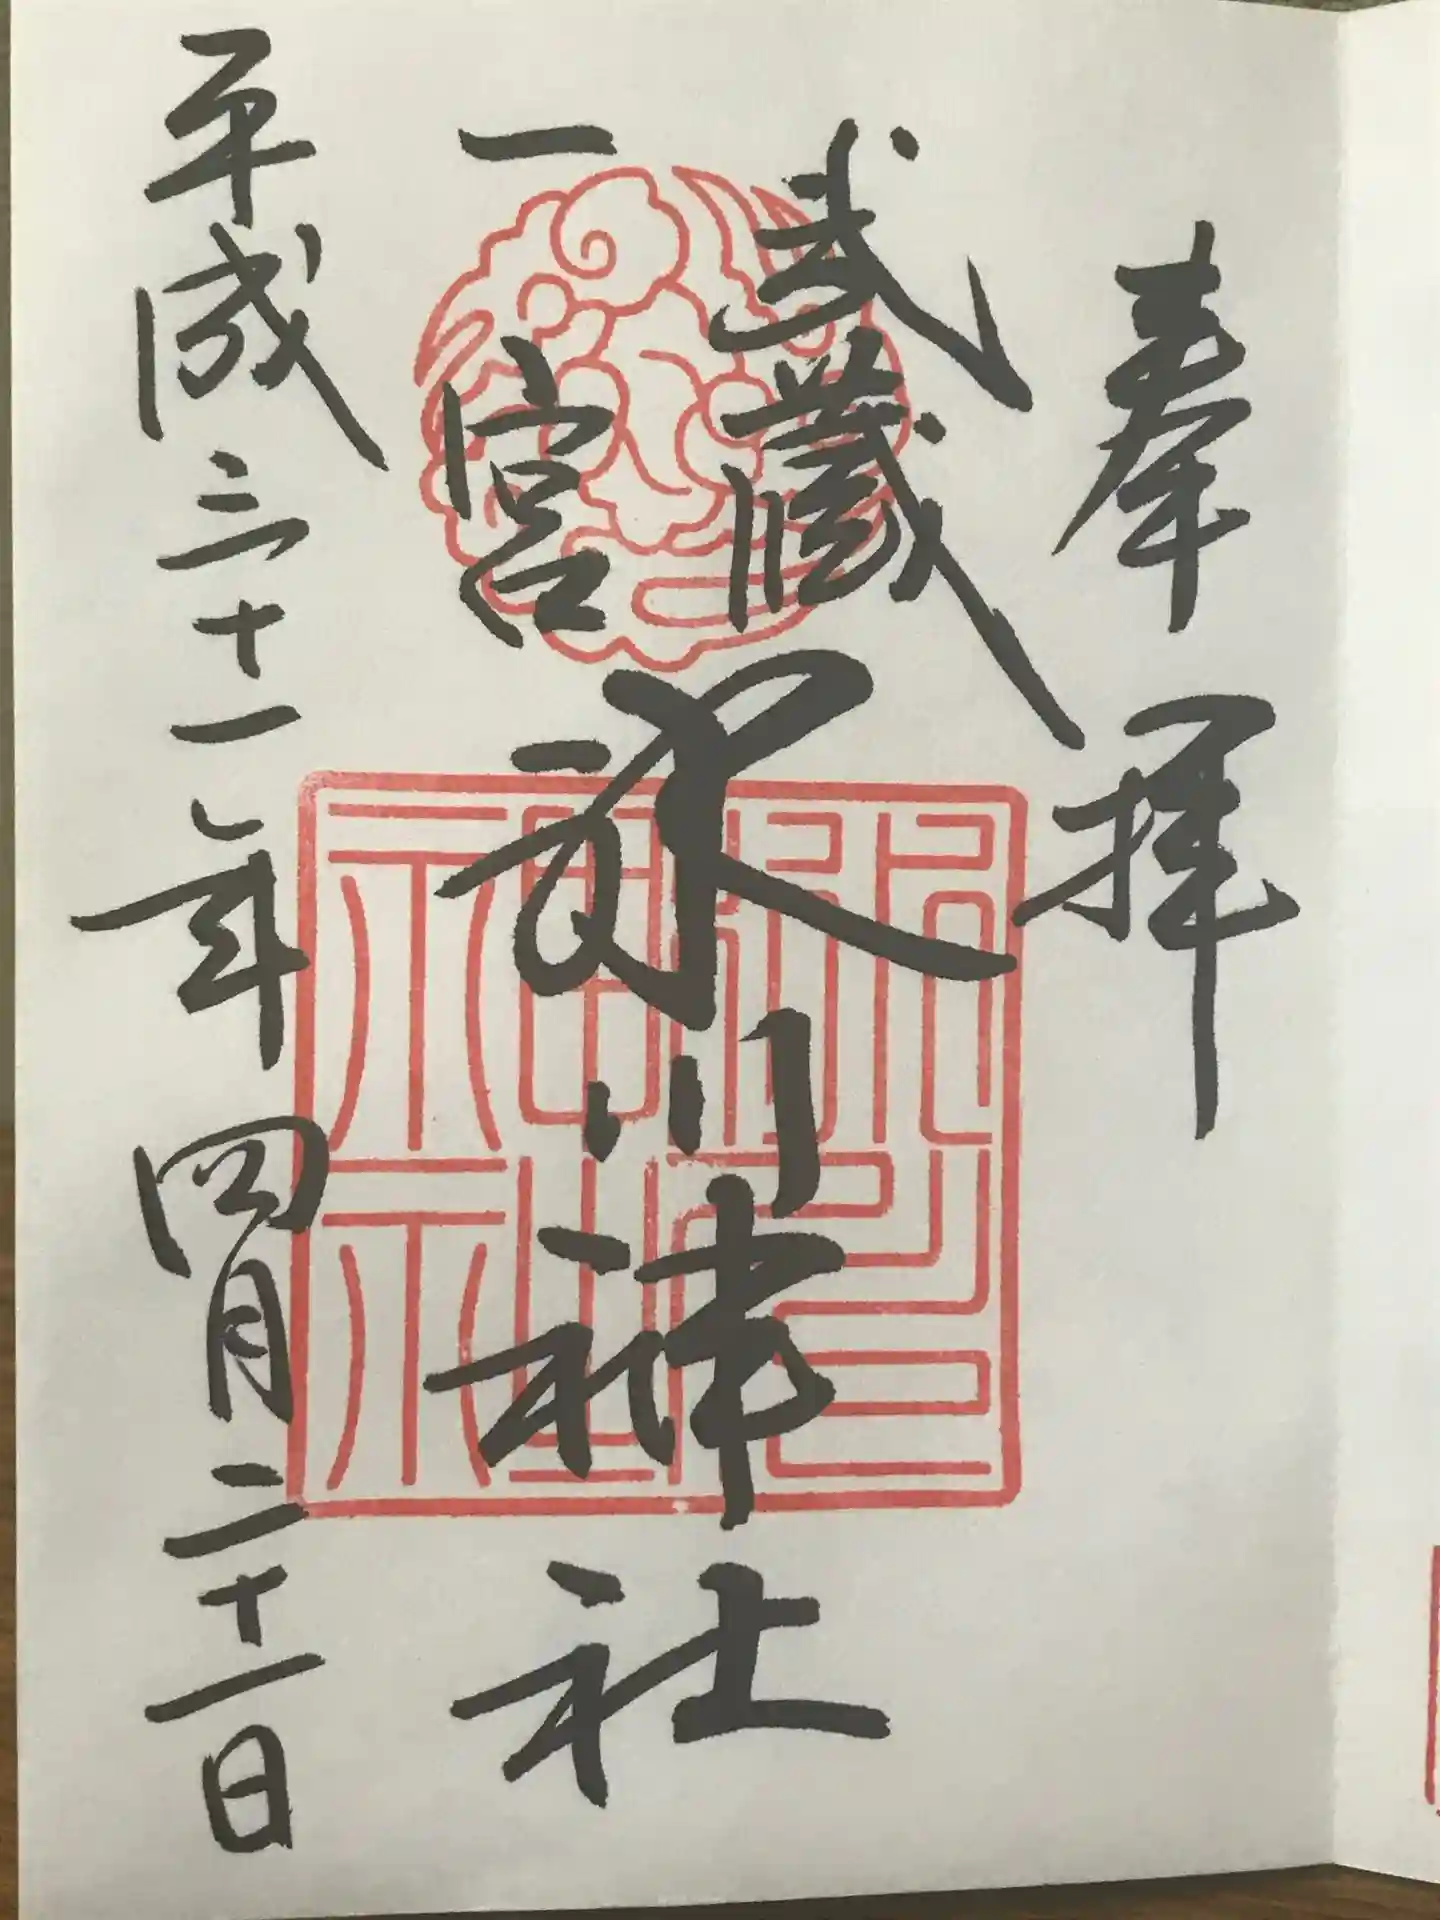 奉拝
武蔵
一宮
氷川神社
平成三十一年四月二十一日
氷川神社